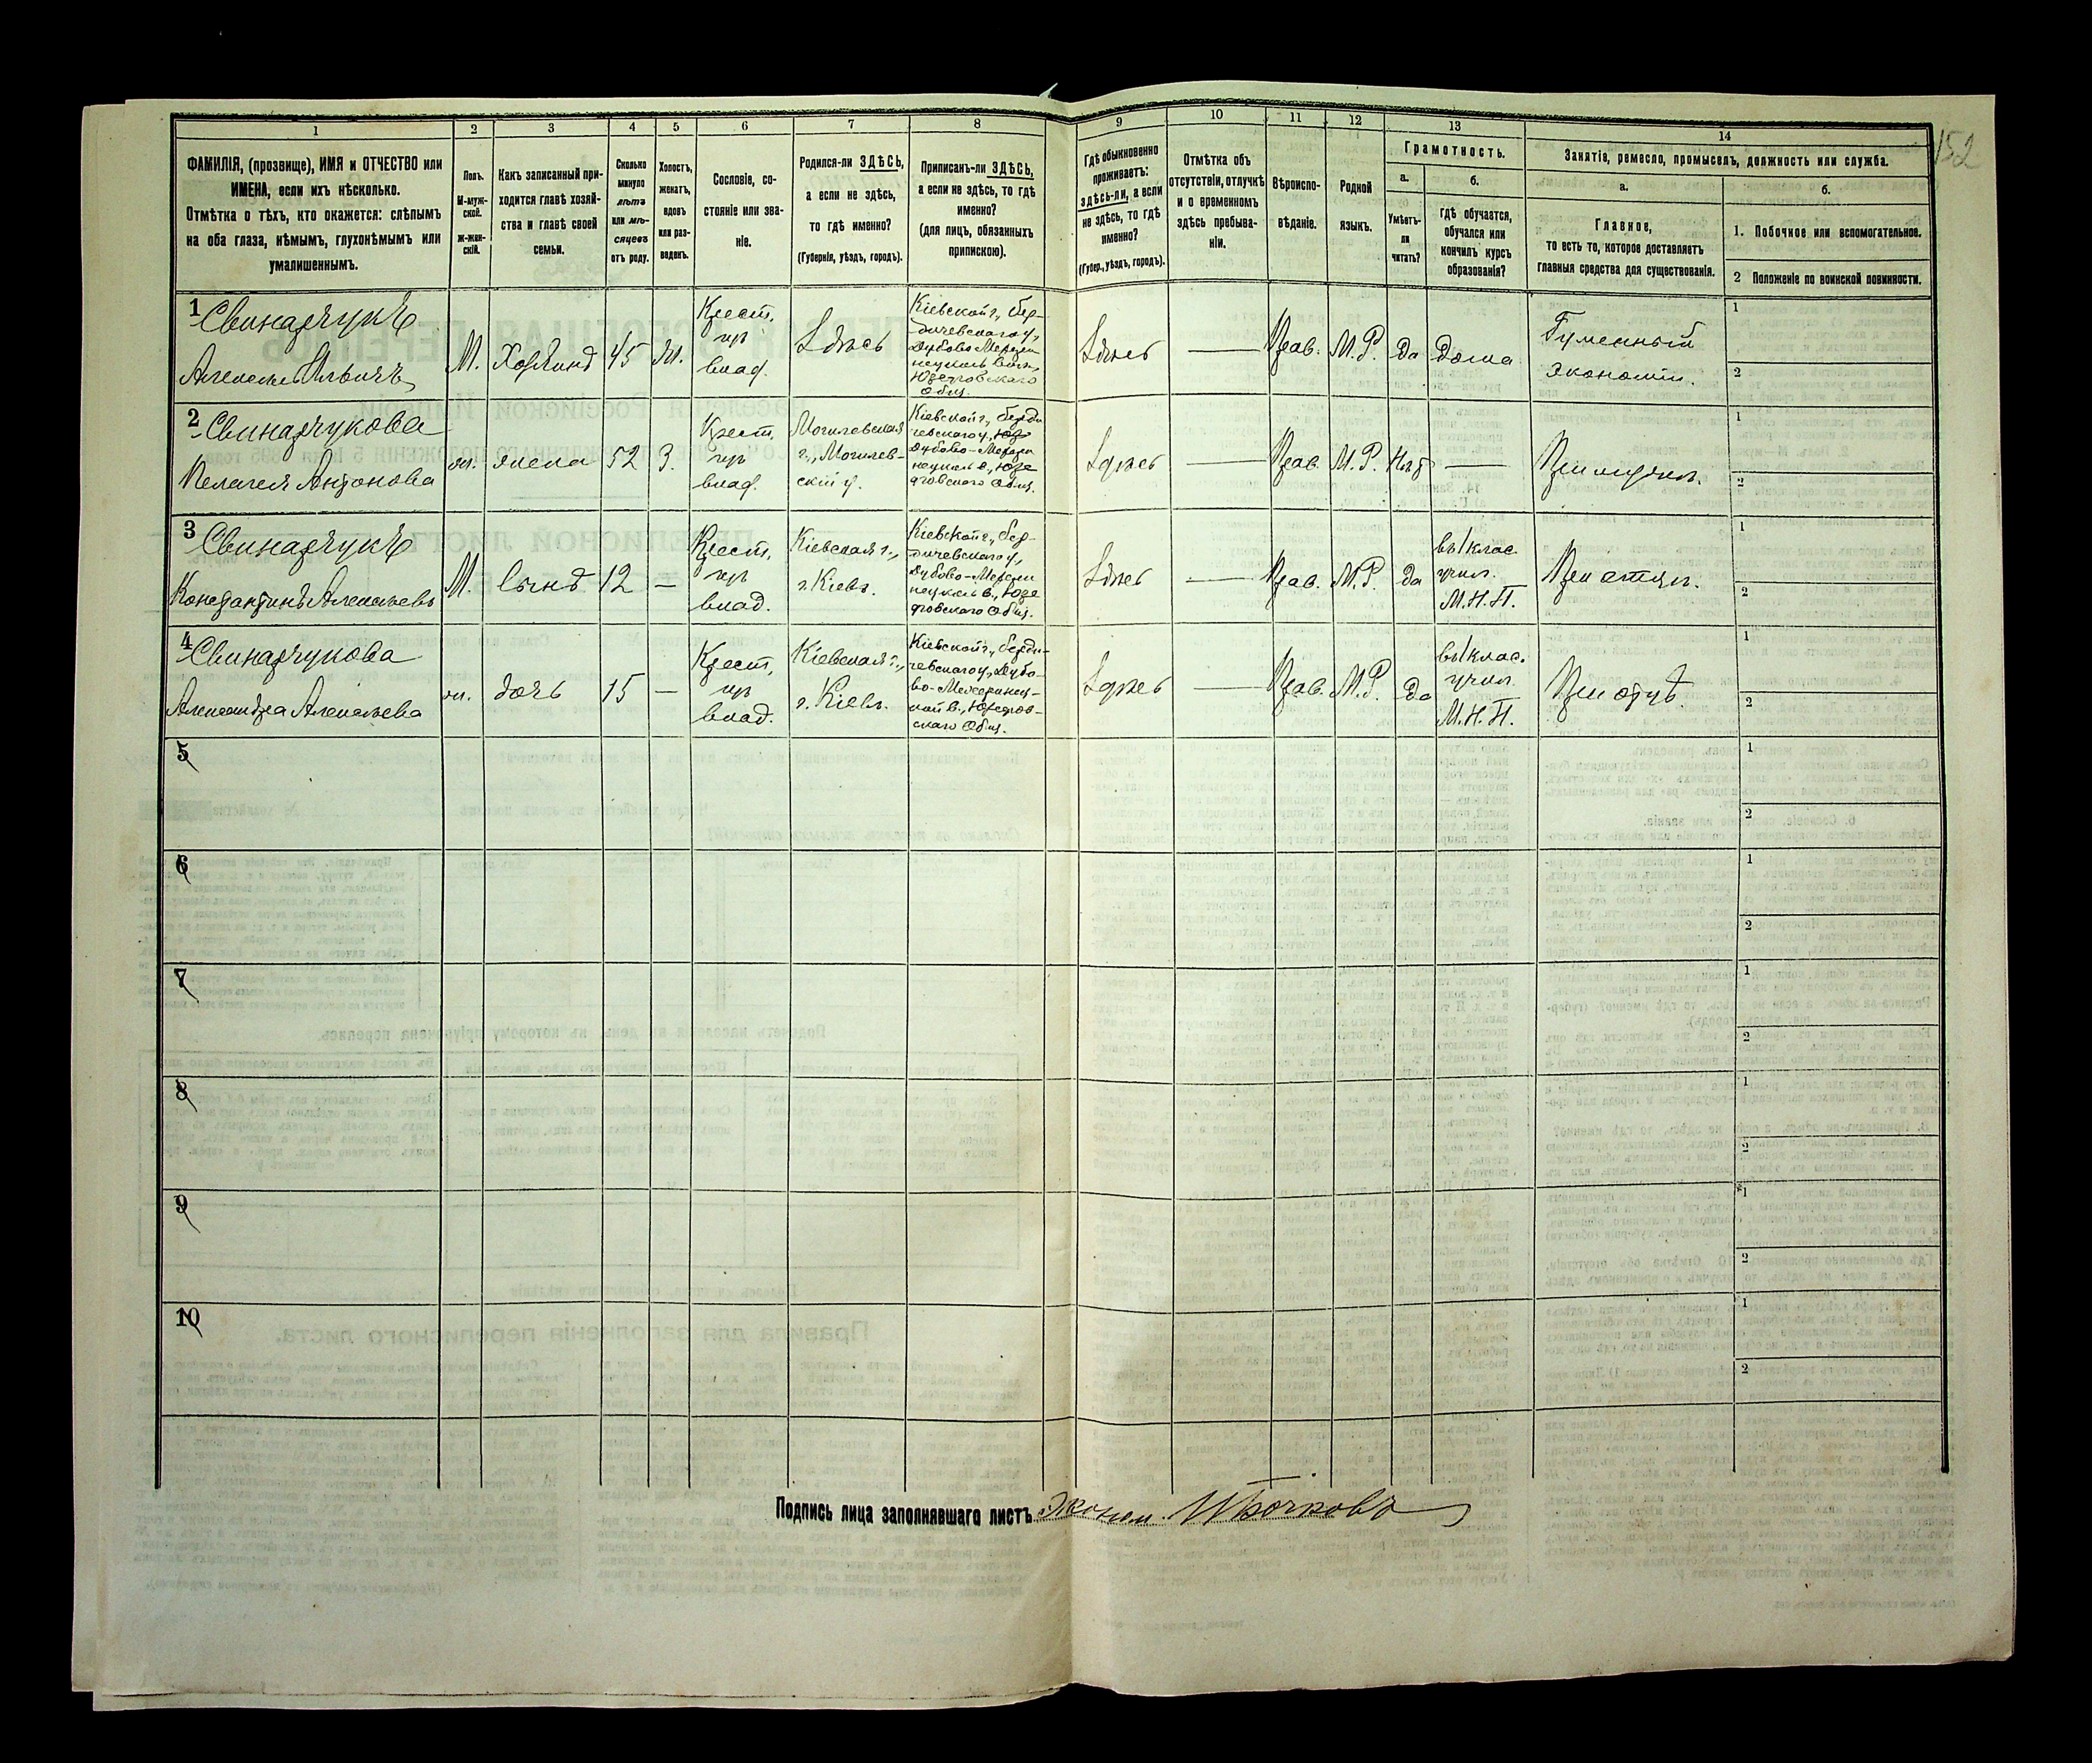 152
1 2 3 4 5 6 7 8 9 10 11 12 13 14
ФАМИЛІЯ, (прозвище), ИМЯ и ОТЧЕСТВО или
ИМЕНА, если ихъ нѣсколько.
Отмѣтка о тѣхъ, кто окажется: слѣпымъ
на оба глаза, нѣмымъ, глухонѣмымъ или
умалишеннымъ.
Полъ.
М-муж-
ской.
Ж-жен-
скій.
Какъ записанный при-
ходится главѣ хозяй-
ства и главѣ своей
семьи.
Сколько
минуло
лѣтъ
или мѣ-
сяцевъ
отъ роду.
Холостъ,
женатъ,
вдовъ
или раз-
веденъ.
Сословіе, со-
стояніе или зва-
ніе.
Родился-ли ЗДѢСЬ,
а если не здѣсь,
то гдѣ именно?
(Губернія, уѣздъ, городъ).
Приписанъ-ли ЗДѢСЬ,
а если не здѣсь, то гдѣ
именно?
(для лицъ, обязанныхъ
припискою).
Гдѣ обыкновенно
проживаетъ:
здѣсь-ли, а если
не здѣсь, то гдѣ
именно?
(Губер., уѣздъ, городъ).
Отмѣтка объ
отсутствіи, отлучкѣ
и о временномъ
здѣсь пребыва-
ніи.
Вѣроиспо-
вѣданіе.
Родной
языкъ.
Грамотность.
а.
Умѣетъ-
ли
читать?
б.
гдѣ обучается,
обучался или
кончилъ курсъ
образованія?
Занятія, ремесло, промыселъ, должность или служба.
а.
Главное,
то есть то, которое доставляетъ
главныя средства для существованія.
б.
1. Побочное или вспомогательное.
2 Положеніе по воинской повинности.
1 Свинарчукъ
Алексѣй Ильичъ
М. Хозяинъ 45 Ж.
Крест.
из
влад.
Здѣсь
Кіевской г., Бер-
дичевскаго у.,
Дубово-Межири
нецкой вол.,
Юзефовскаго
Общ.
Здѣсь — Прав. М.Р. да дома
Гуменный
экономіи.
1
2
2 Свинарчукова
Пелагея Антонова
ж. жена 52 З.
Крест.
из
влад.
Могилевская
г., Могилев-
скій у.
Кіевской г., Берди
чевскаго у.,
Дубово-Межири
нецкой в., Юзе
фовскаго Общ.
Здѣсь — Прав. М.Р. Нѣт —
При мужѣ.
1
2
3 Свинарчукъ
Константинъ Алексѣевъ
М. сынъ 12 —
Крест.
из
влад.
Кіевская г.,
г. Кіевъ.
Кіевской г., Бер-
дичевскаго у.,
Дубово-Межири
нецкой в., Юзе
фовскаго Общ.
Здѣсь — Прав. М.Р. да
въ 1 клас.
учил.
М.Н.П.
При отцѣ.
1
2
4 Свинарчукова
Александра Алексѣева
ж. дочь 15 —
Крест.
из
влад.
Кіевская г.,
г. Кіевъ.
Кіевской г., Берди-
чевскаго у., Дубо-
во-Межиринец-
кой в., Юзефов-
скаго Общ.
Здѣсь — Прав. М.Р. Да
въ 1 клас.
учил.
М.Н.П.
При отцѣ.
1
2
5
1
2
6
1
2
7
1
2
8
1
2
9
1
2
10
1
2
Подпись лица заполнявшаго листъ